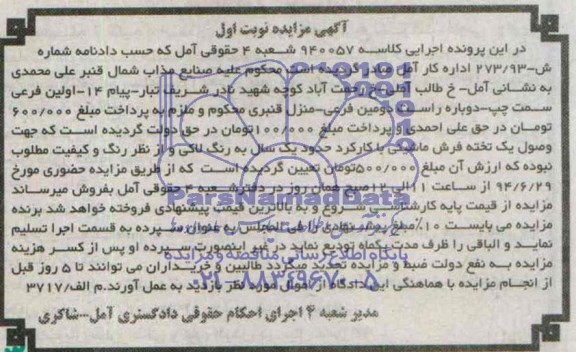 آگهی مزایده نوبت اول
در این پرونده اجرایی کلاسه ۹۴۰۰۵۷ شعبه ۴ حقوقی آمل که حسب دادنامه شماره
ش-۲۷۳/۹۳ اداره کار آمل صادر گردیده است محکوم علیه صنایع مذاب شمال قنبر علی محمدی
به نشانی آمل- خ طالب آملی-خ رحمت آباد کوچه شهید نادر شریف تبار-پیام ۱۴-اولین فرعی
سمت چپ-دوباره راست دومین فرعی-منزل قنبری محکوم و ملزم به پرداخت مبلغ ۶۰۰/۰۰۰
تومان در حق علی احمدی و پرداخت مبلغ ۱۰۰/۰۰۰تومان در حق دولت گردیده است که جهت
وصول یک تخته فرش ماشینی با کارکرد حدود یک سال به رنگ لاکی و از نظر رنگ و کیفیت مطلوب
نبوده که ارزش آن مبلغ ۵۰۰/۰۰۰تومان تعیین گردیده است که از طریق مزایده حضوری مورخ
۹۴/۶/۲۹ از ساعت ۱۱الی ۱۲صبح همان روز در دفترشعبه ۴ حقوقی آمل بفروش میرساند
مزایده از قیمت پایه کارشناسی شروع و به بالاترین قیمت پیشنهادی فروخته خواهد شد برنده
مزایده می بایست ۱۰٪مبلغ پیشنهادی را فی المجلس به عنوان سپرده به قسمت اجرا تسلیم
نماید و الباقی را ظرف مدت یکماه تودیع نماید در غیر اینصورت سپرده او پس از کسر هزینه
مزایده به نفع دولت ضبط و مزایده تجدید میگردد طالبین و خریداران می توانند تا ۵ روز قبل
از انجام مزایده با هماهنگی این دادگاه از اموال مورد نظر بازدید به عمل آورند.م الف/۳۷۱۷
مدیر شعبه ۴ اجرای احکام حقوقی دادگستری آمل-شاکری
ParsNamadData
پایگاه اطلاع رسانی مناقصه و مزایده
۰۲۱-۸۸۳۴۹۶۷۰-۵